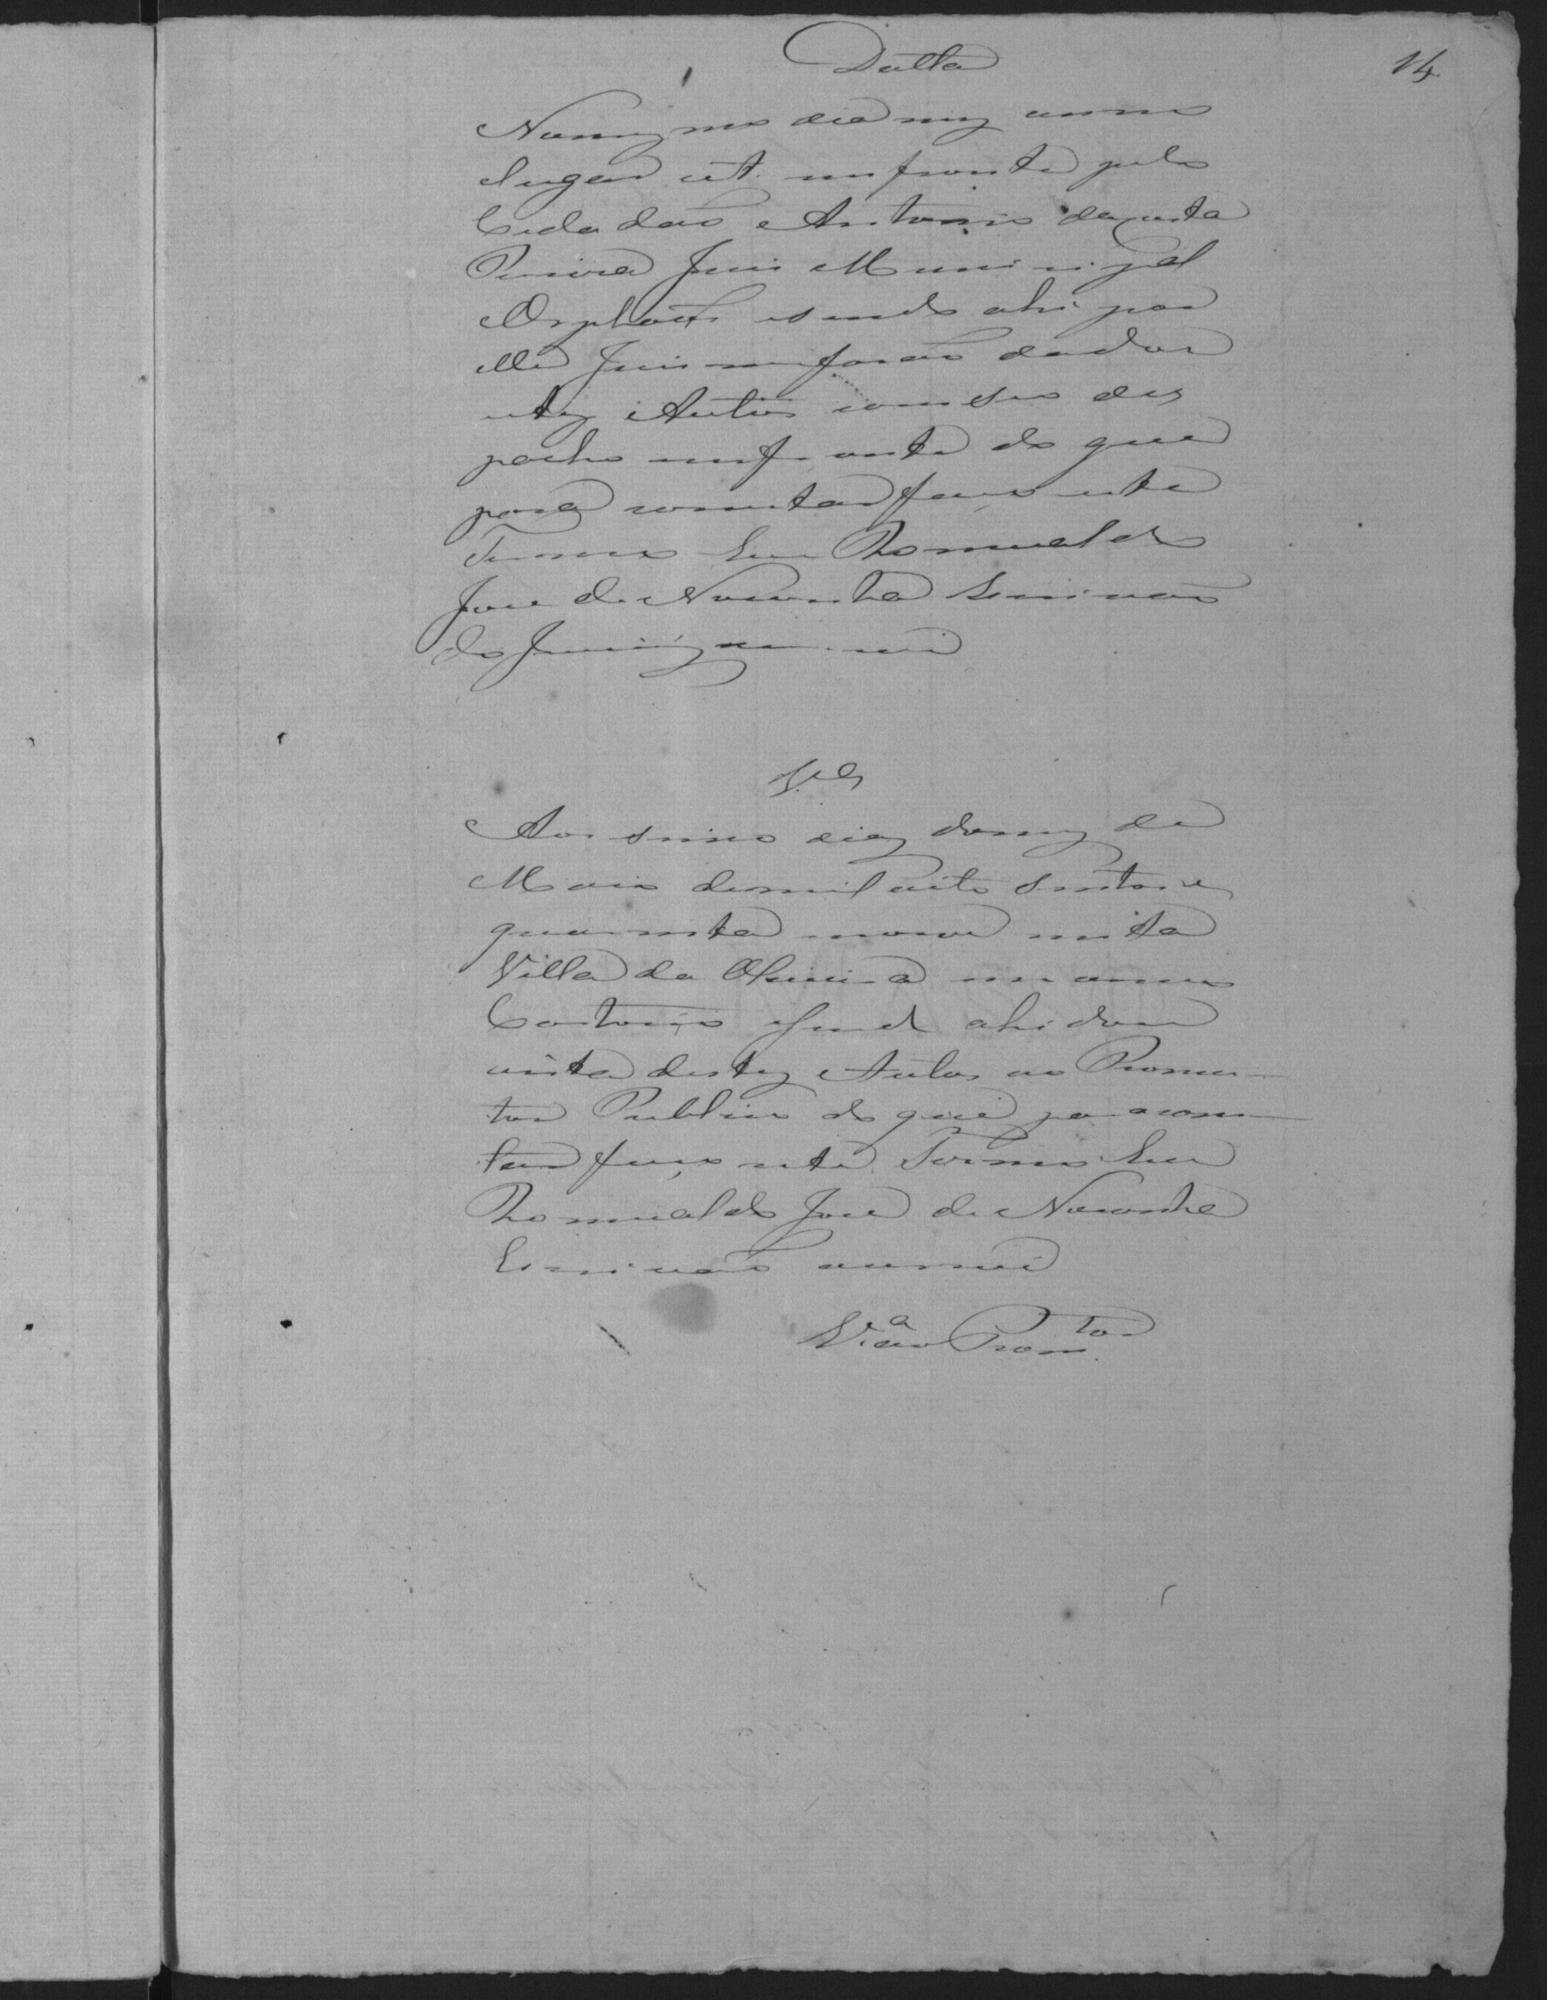 14
Datta
No mesmo dia mez anno
elugar ut. emfronte pelo
Cidadaõ Antonio da Costa
Pereira Juis Municipal
Orphaõs esendo ahi por
elle Juis meforaõ dados
estes Autos com seu des
pacho emfronte do que
para constar faço este
Termo Eu Romualdo
Jose de Noronha Escrivaõ
do
Aos sinco dias domes de
Maio demil oito sentos e
quarenta nove nesta
Villa da Oliveira em meu
Cartorio esendo ahi dou
vista destes Autos ao Promo-
tor Publico do que para cons
tar faço este Termo Eu
Romualdo Jose de Noronha
Escrivaõ escrevi
V.ª ao Prom.tor